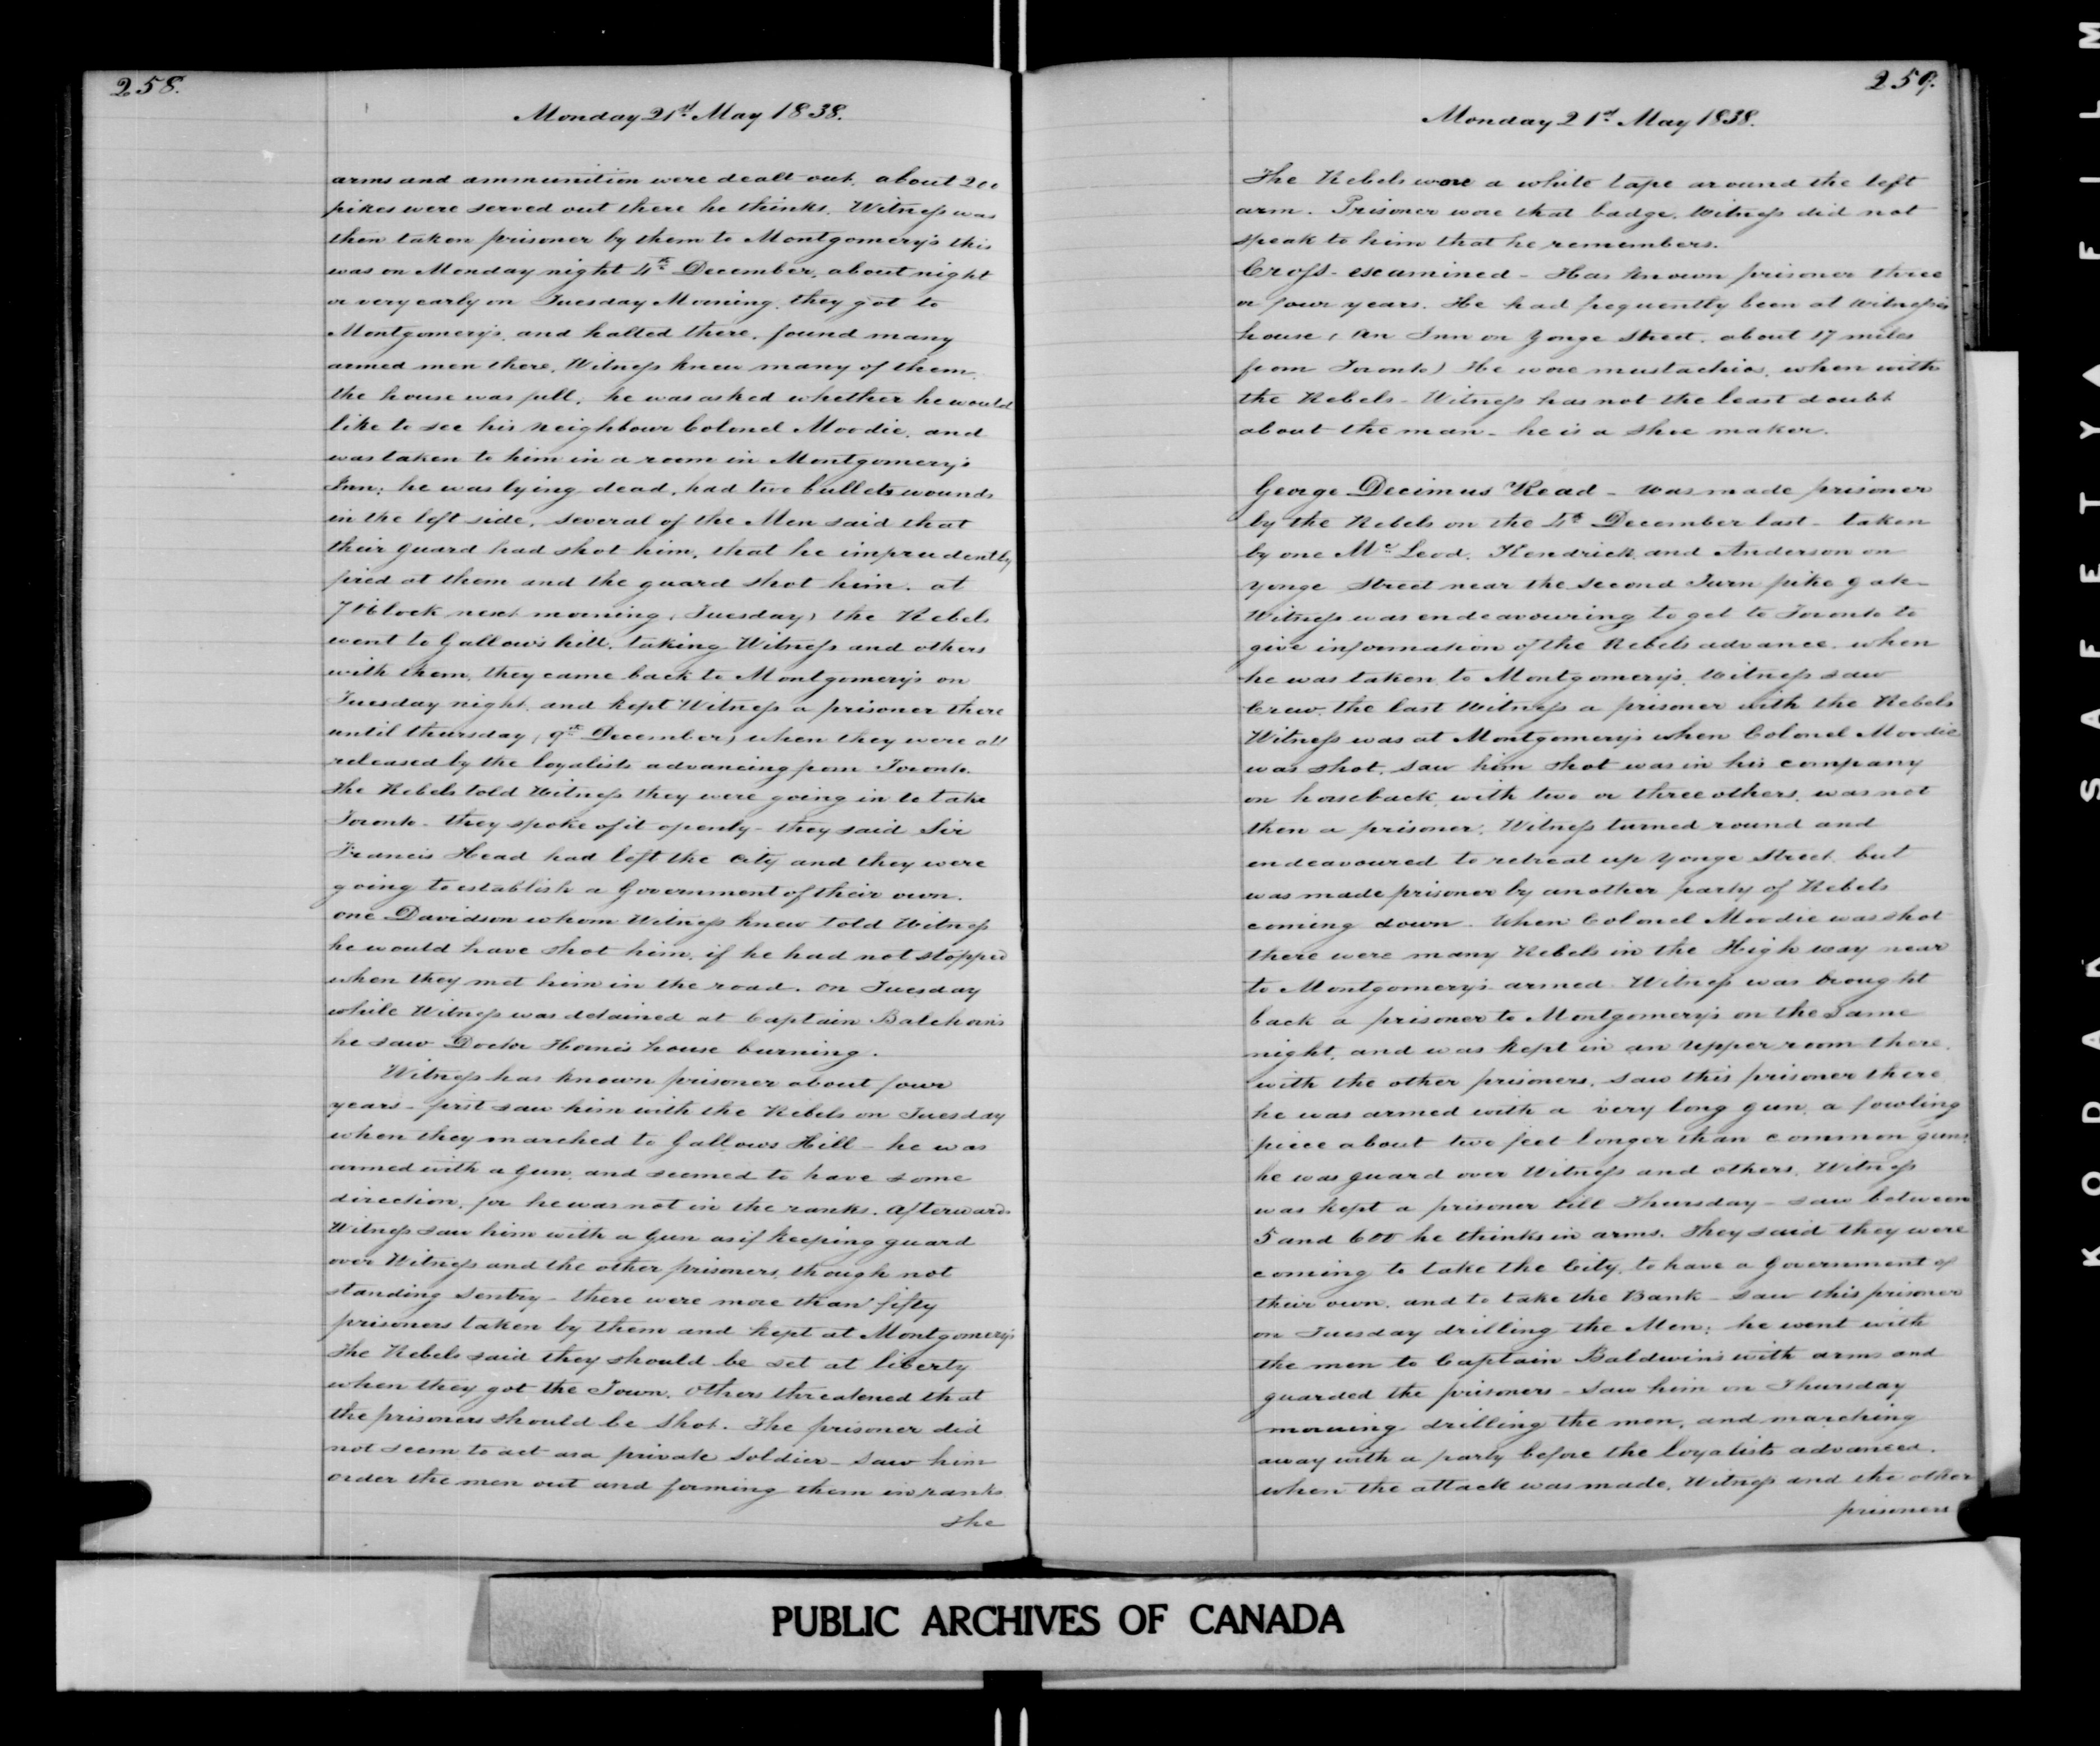 258.
Monday 21st May 1838.
arms and ammunition were dealt out. about 200
pikes were served out there he thinks. Witness was
then taken prisoner by them to Montgomery's this
was on Monday night 4th December, about night
or very early on Tuesday Morning. they got to
Montgomery's, and halted there, found many
armed men there, Witness knew many of them.
the house was full, he was asked whether he would
like to see his neighbour Colonel Moodie, and
was taken to him in a room in Montgomery's
Inn; he was lying dead, had two bullets wounds
in the left side, several of the Men said that
their guard had shot him, that he imprudently
fired at them and the guard shot him. at
7 oClock next morning (Tuesday) the Rebels
went to Gallows hill, taking Witness and others
with them, they came back to Montgomery's on
Tuesday night, and kept Witness a prisoner there
until thursday (9th December) when they were all
released by the loyalists advancing from Toronto.
The Rebels told Witness they were going in to take
Toronto - they spoke of it openly - they said Sir
Francis Head had left the City and they were
going to establish a Government of their own.
one Davidson whom Witness knew told Witness
he would have shot him, if he had not stopped
when they met him in the road. on Tuesday
while Witness was detained at Captain
he saw Doctor Horne's house burning.
Witness has known prisoner about four
years - first saw him with the Rebels on Tuesday
when they marched to Gallows Hill - he was
armed with a gun, and seemed to have some
direction, for he was not in the ranks. afterwards
Witness saw him with a gun as if keeping guard
over Witness and the other prisoners, though not
standing Sentry - there were more than fifty
prisoners taken by them and kept at Montgomery's
The Rebels said they should be set at liberty
when they got the Town. others threatened that
the prisoners should be shot. The prisoner did
not seem to act as a private soldier - saw him
order the men out and forming them in ranks
The
259.
Monday 21st May 1838.
The Rebels wore a white tape around the left
arm. Prisoner wore that badge. Witness did not
speak to him that he remembers.
Cross-examined - Has known prisoner three
or four years. He had frequently been at Witness's
house (an Inn on Yonge Street, about 17 miles
from Toronto) He wore mustachios, when with
the Rebels - Witness has not the least doubt
about the man - he is a shoe maker.
George Decimus Read - was made prisoner
by the Rebels on the 4th December last - taken
by one McLeod, Kendrick, and Anderson on
Yonge Street near the second Turn pike gate -
Witness was endeavouring to get to Toronto to
give information of the Rebels advance, when
he was taken, to Montgomery's. Witness saw
Crew, the last Witness a prisoner with the Rebels
Witness was at Montgomery's when Colonel Moodie
was shot, saw him shot was in his company
on horseback, with two or three others, was not
then a prisoner, Witness turned round and
endeavoured to retreat up Yonge Street, but
was made prisoner by another party of Rebels
coming down. When Colonel Moodie was shot
there were many Rebels in the High way near
to Montgomery's armed. Witness was brought
back a prisoner to Montgomery's on the same
night, and was kept in an upper room there.
with the other prisoners, saw this prisoner there
he was armed with a very long gun, a fowling
piece about two feet longer than common guns
he was guard over Witness and others. Witness
was kept a prisoner till Thursday - saw between
5 and 600 he thinks in arms. They said they were
coming to take the City, to have a Government of
their own, and to take the Bank - saw this prisoner
on Tuesday drilling the Men; he went with
the men to Captain Baldwin's with arms and
guarded the prisoners - saw him on Thursday
morning drilling the men, and marching
away with a party before the loyalists advanced.
when the attack was made, Witness and the other
prisoners
PUBLIC ARCHIVES OF CANADA
KODAK SAFETY ▲ FILM